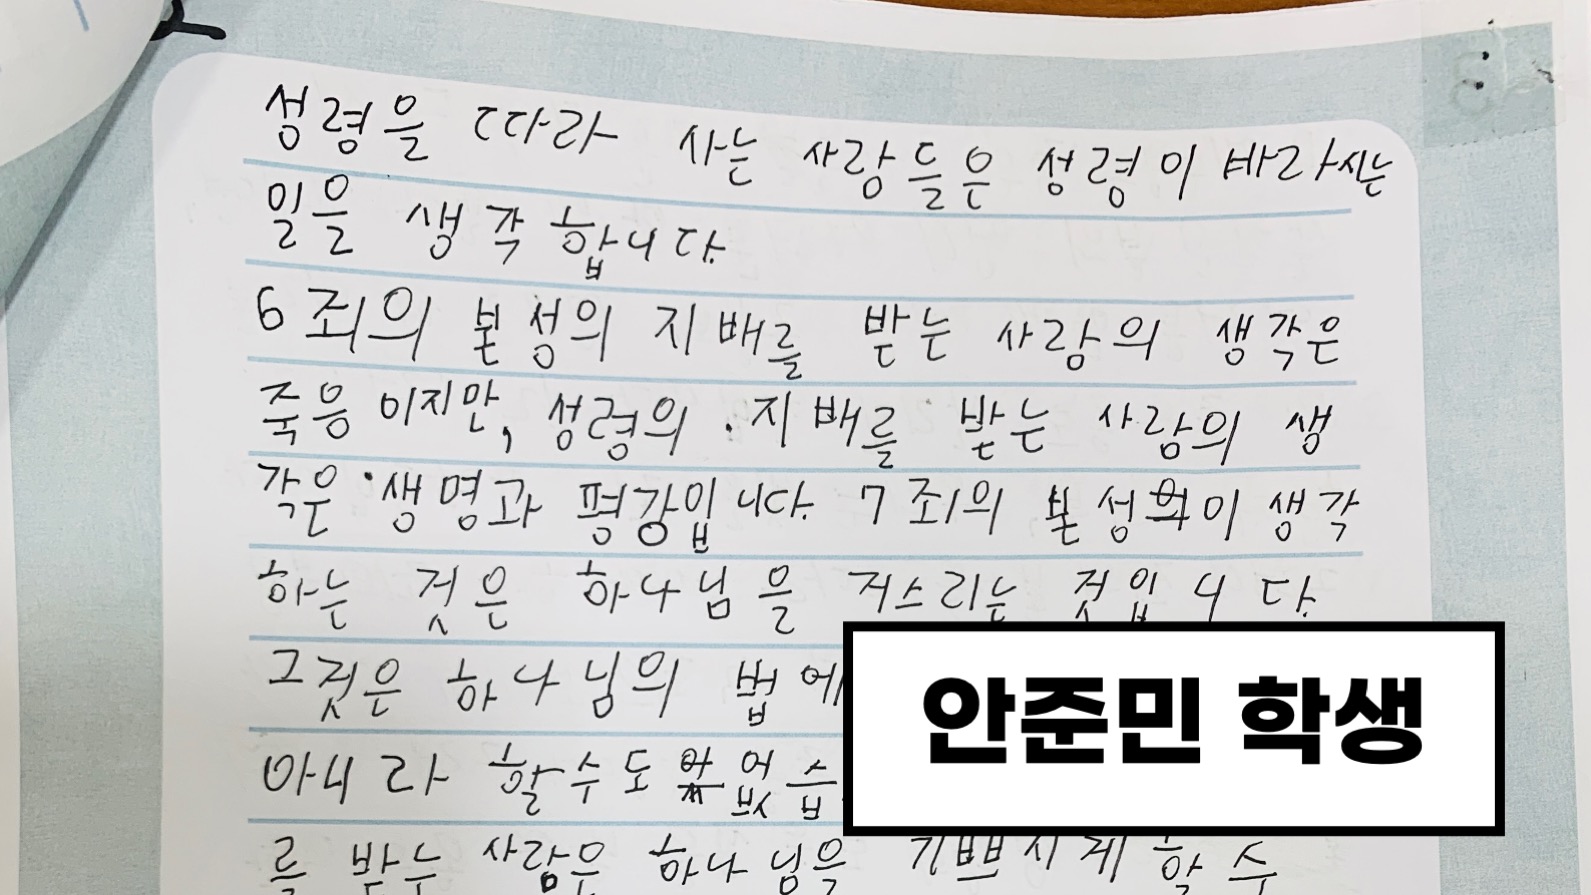 성령을 따라 사는 사람들은 성령이 바라시는
일을 생각합니다.
6 죄의 본성의 지배를 받는 사람의 생각은
죽음이지만, 성령의 지배를 받는 사람의 생
각은 생명과 평강입니다. 7 죄의 본성이 생각
하는 것은 하나님을 거스리는 것입니다.
그것은 하나님의 법에
아니라 할수도 없습
를 받는 사람은 하나님을 기쁘시게 할 수
안준민 학생